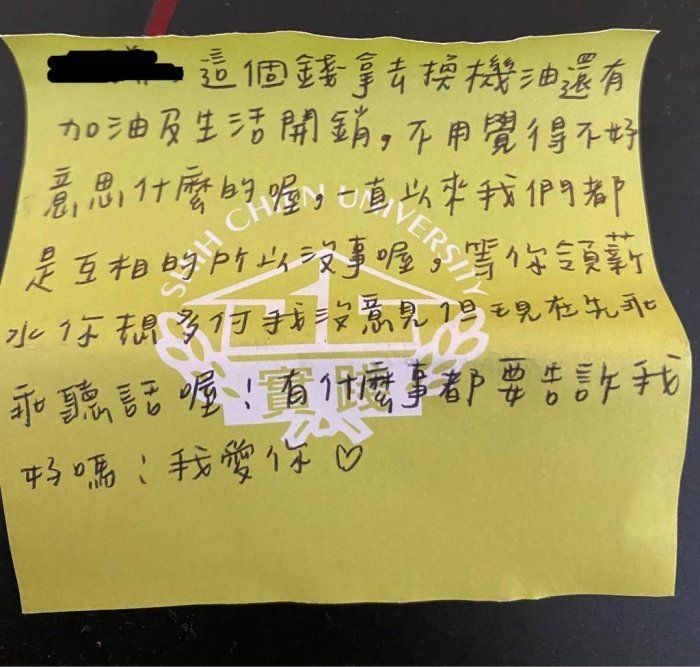 這個錢拿去換機油還有
加油及生活開銷，不用覺得不好
意思什麼的喔，一直以來我們都
是互相的所以沒事喔，等你領薪
水你想多付我沒意見但現在先乖
乖聽話喔！有什麼事都要告訴我
好嗎！我愛你♡
SHIH CHIEN UNIVERSITY
實踐